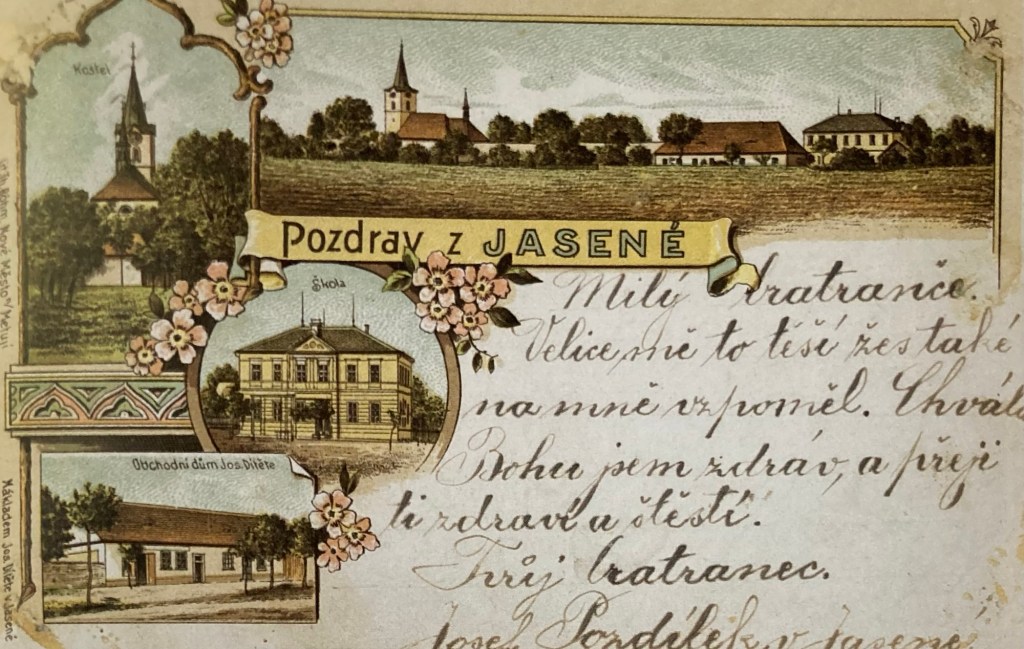 Kostel
Pozdrav z JASENÉ
Škola
Obchodní dům Jos. Dítěte
Nákladem Jos. Dítěte v Jasené
Nové Město n/Metují
Milý bratranče.
Velice mě to těší žes také
na mně vzpoměl. Chvála
Bohu jsem zdráv, a přeji
ti zdraví a štěstí.
Tvůj bratranec.
Josef Pozdílek v Jasené